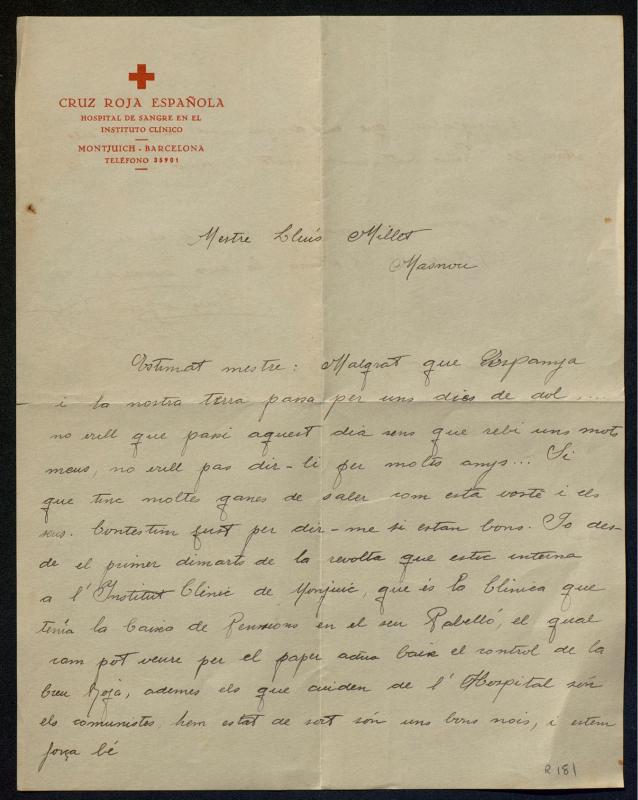 CRUZ ROJA ESPAÑOLA
HOSPITAL DE SANGRE EN EL
INSTITUTO CLÍNICO
MONTJUICH - BARCELONA
TELÉFONO 35901
Mestre Lluís Millet
Masnou
Estimat mestre: Malgrat que Espanya
i la nostra terra passa per uns dies de dol...
no vull que passi aquest dia sens que rebi uns mots
meus, no vull pas dir-li per moltes anys... Si
que tinc moltes ganes de saber com està vosté i els
seus. Contestim just per dir-me si estan bons. Jo des-
de el primer dimarts de la revolta que estic interna
a l'Institut Clinic de Monjuic, que és la Clinica que
tenía la Caixa de Pensions en el seu Pabelló, el qual
com pot veure per el paper actua baix el control de la
Creu Roja, ademes els que cuiden de l'Hospital són
els comunistes, hem estat de sort són uns bons nois, i estem
força bé
R 181